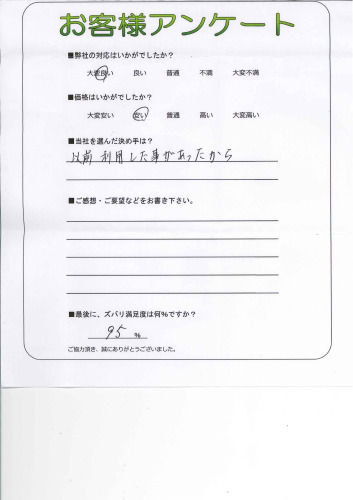 お客様アンケート
■弊社の対応はいかがでしたか？
大変良い 良い 普通 不満 大変不満
■価格はいかがでしたか？
大変安い 安い 普通 高い 大変高い
■当社を選んだ決め手は？
以前利用した事があったから
■ご感想・ご要望などをお書き下さい。
■最後に、ズバリ満足度は何％ですか？
95 %
ご協力頂き、誠にありがとうございました。